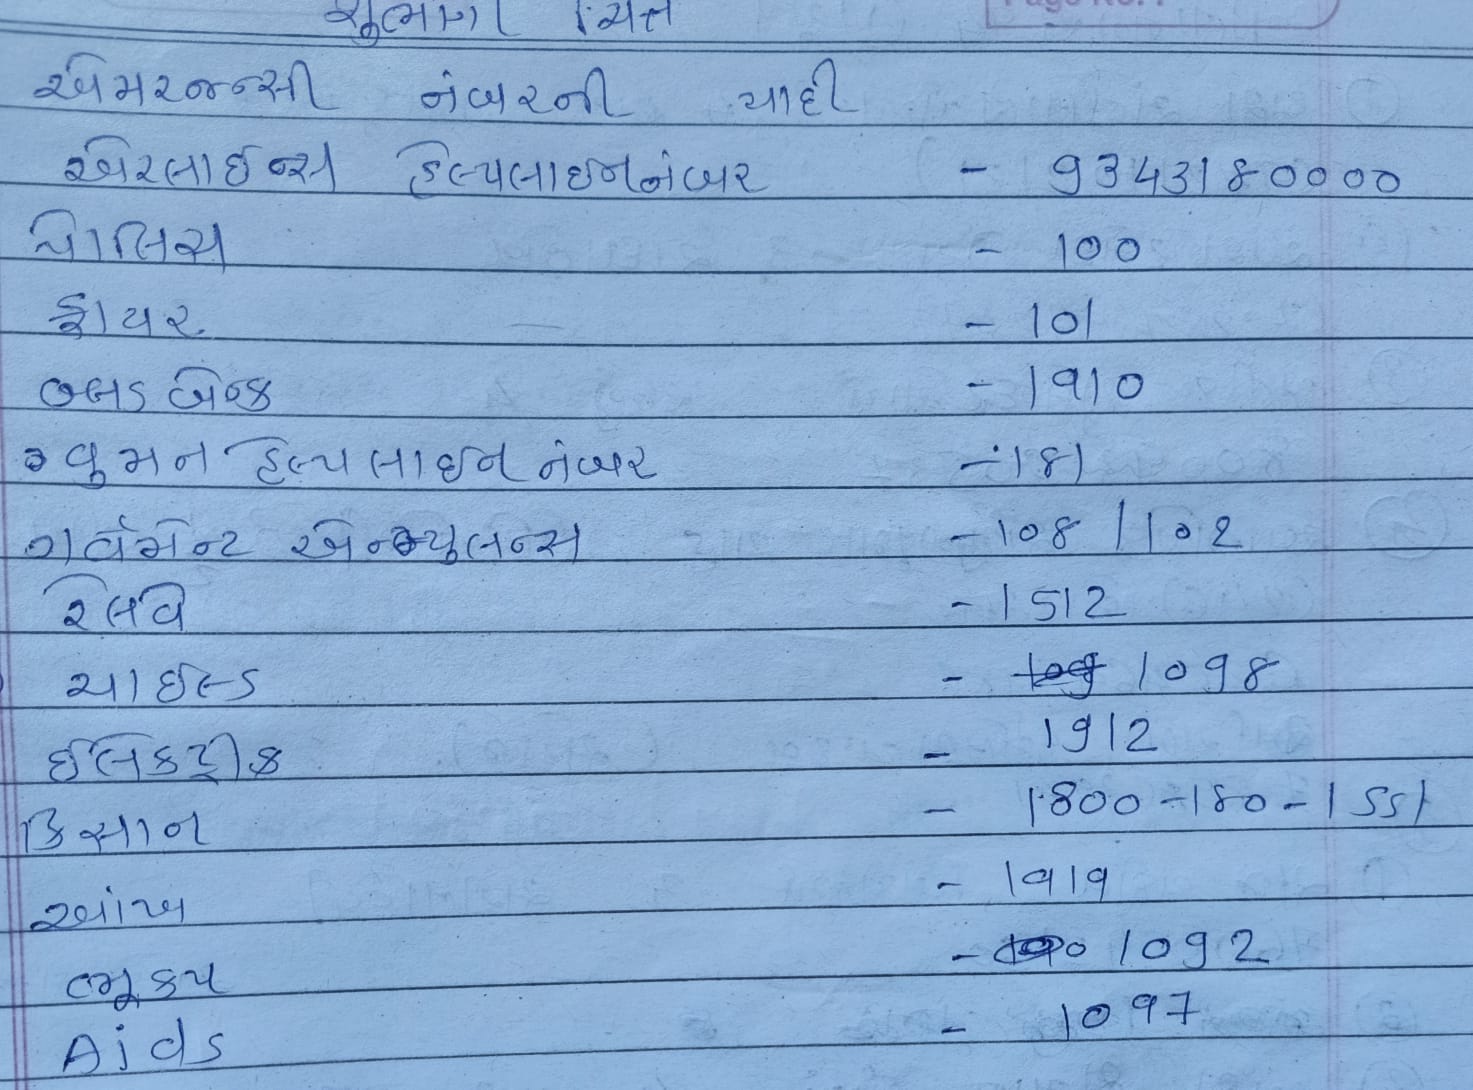 એમરજન્સી નંબરની યાદી
એરલાઈન્સ હેલ્પલાઇનનંબર - 9343180000
પોલિસ - 100
ફાયર - 101
બ્લડ બેન્ક - 1910
વુમન હેલ્પલાઇન નંબર - 181
ગર્વમેન્ટ એમ્બ્યુલન્સ - 108 / 102
રેલવે - 1512
ચાઈલ્ડ - 1098
ઈલેકટ્રીક - 1912
કિસાન - 1800-180-1551
આંખ - 1919
ભૂકંપ - 1092
Aids - 1097